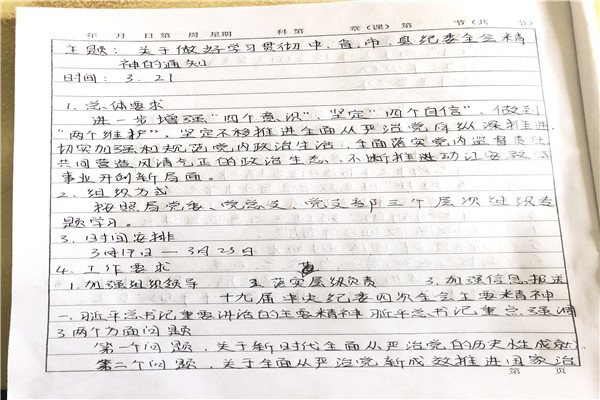 年 月 日 第 周 星期 科 第 章(课) 第 节(共 节)
主题: 关于做好学习贯彻中、省、市、县纪委全会精
神的通知
时间: 3.21
1. 总体要求
进一步增强"四个意识"、坚定"四个自信"、做到
"两个维护", 坚定不移推进全面从严治党向纵深推进,
切实加强和规范党内政治生活, 全面落实党内监督责任
共同营造风清气正的政治生态, 不断推进动江安
事业开创新局面。
2. 组织方式
按照局党委、党总支、党支部三个层次组织专
题学习。
3. 时间安排
3月19日—3月25日
4. 工作要求
1. 加强组织领导 2. 落实层级负责 3. 加强信息报送
十九届中央纪委四次全会主要精神
一. 习近平总书记重要讲话的主要精神 习近平总书记重点强调
3两个方面问题
第一个问题, 关于新时代全面从严治党的历史性成就
第二个问题, 关于全面从严治党新成效推进国家治
第 页